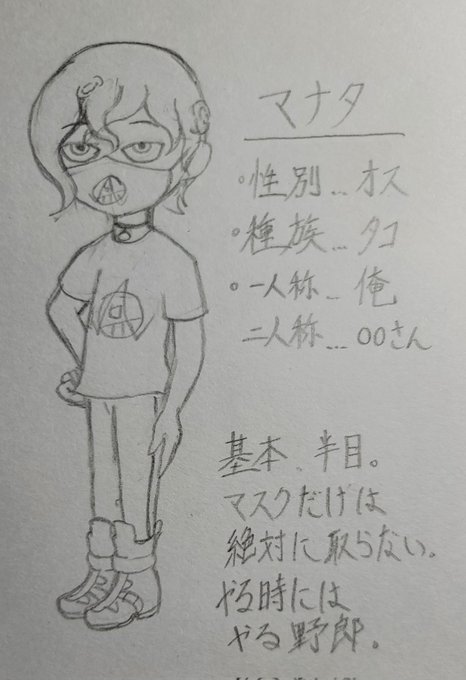 マナタ
・性別…オス
・種族…タコ
・一人称…俺
二人称…○○さん
基本、半目。
マスクだけは
絶対に取らない。
やる時には
やる野郎。